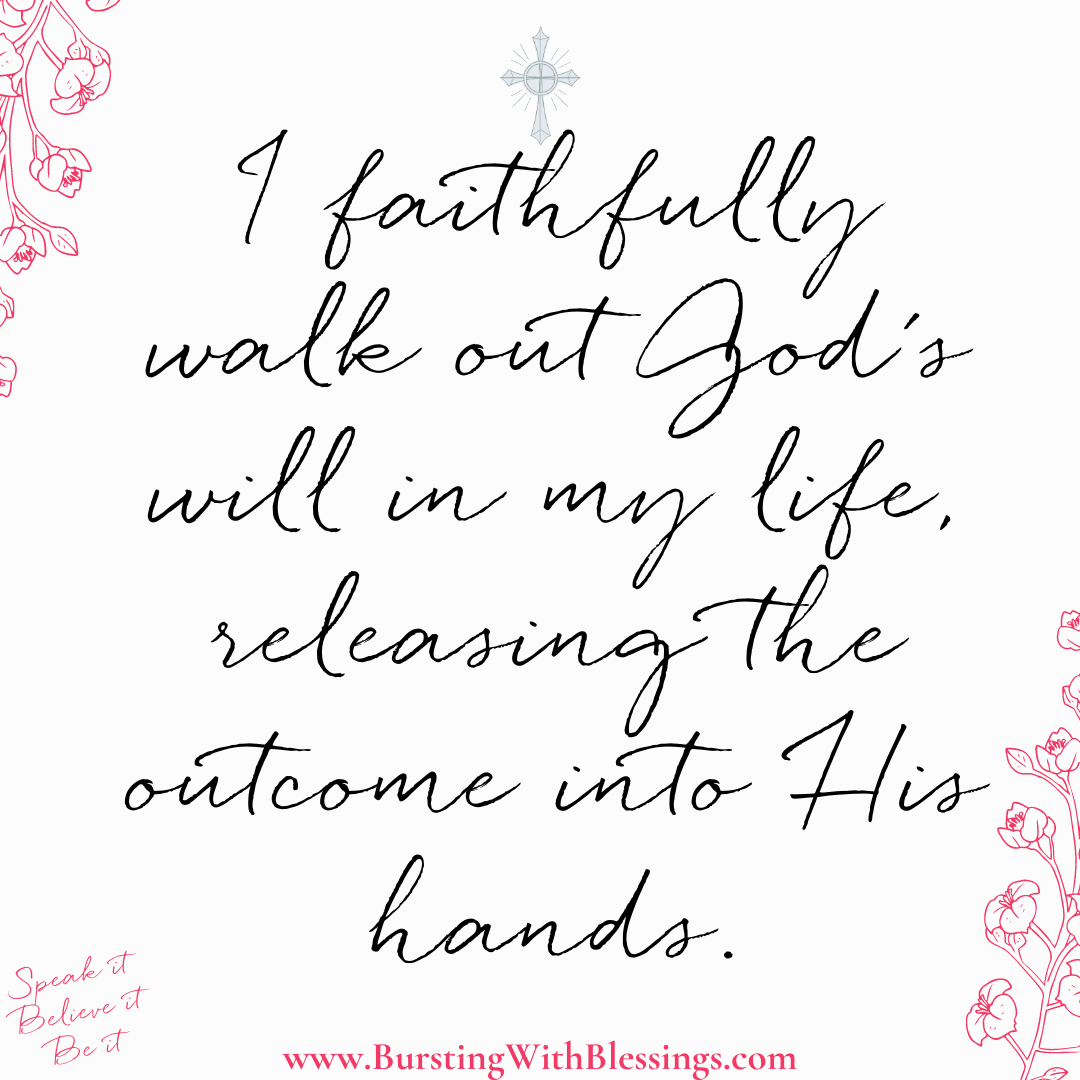 I faithfully
walk out God's
will in my life,
releasing the
outcome into His
hands.
Speak it
Believe it
Be it
www.BurstingWithBlessings.com